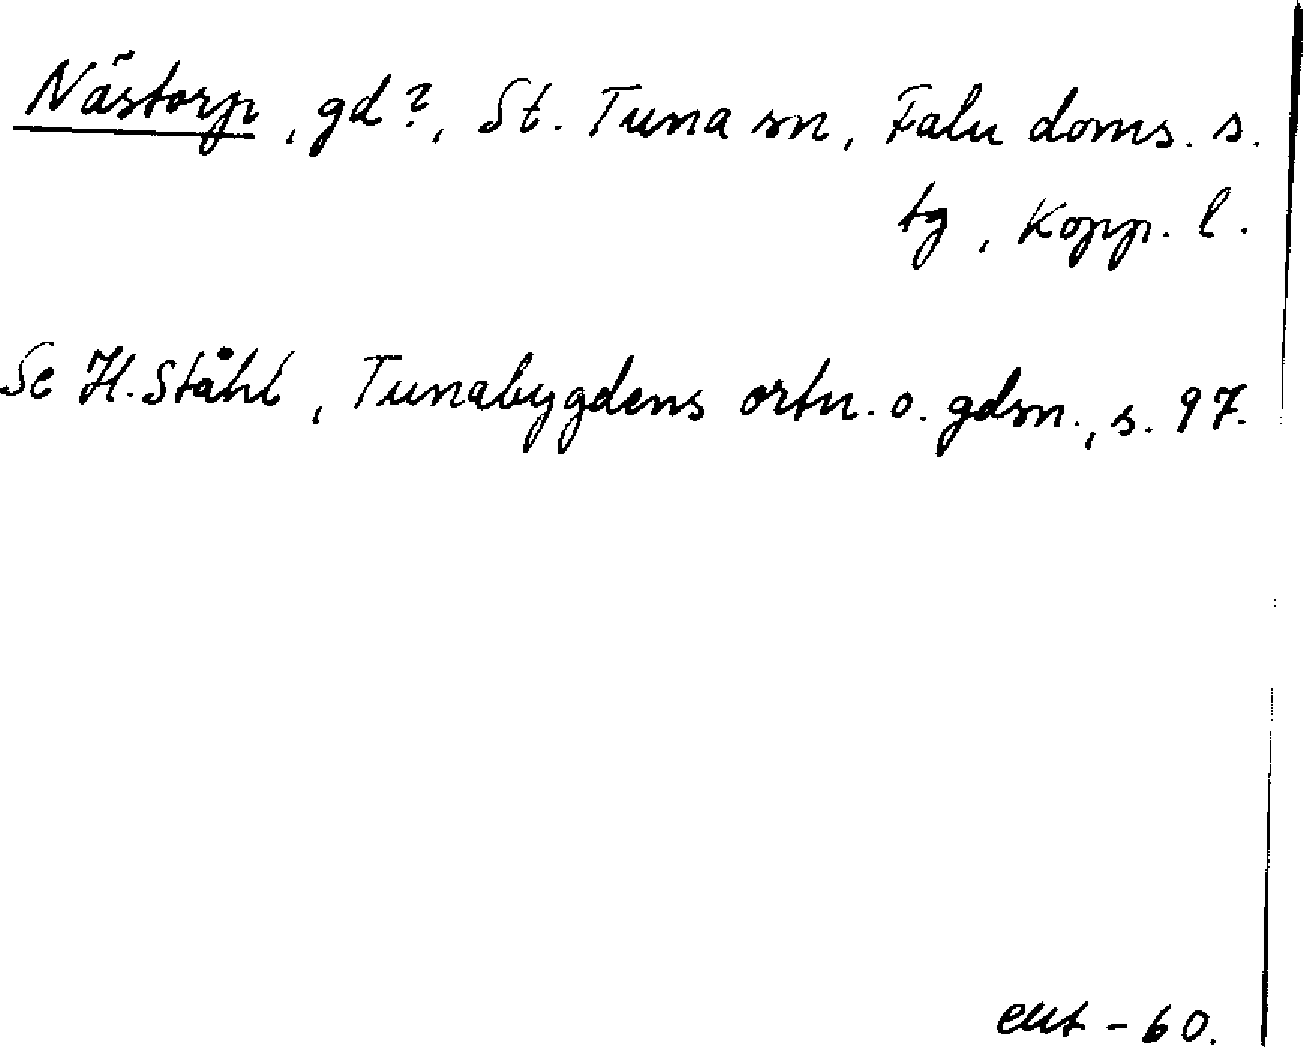 Nästorp, gd?, St. Tuna sn, Falu doms. s.
tg, Kopp. l.
Se H. Ståhl, Tunabygdens ortn. o. gdsn., s. 97.
- 60.